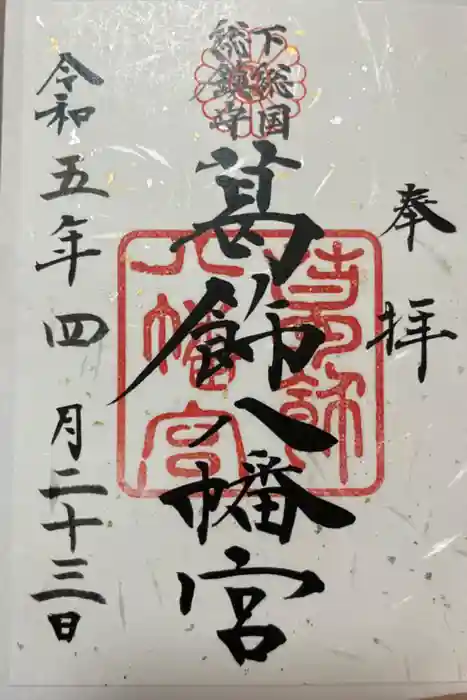 奉拝
下総国
総鎮守
葛飾八幡宮
葛飾
八幡宮
令和五年四月二十三日